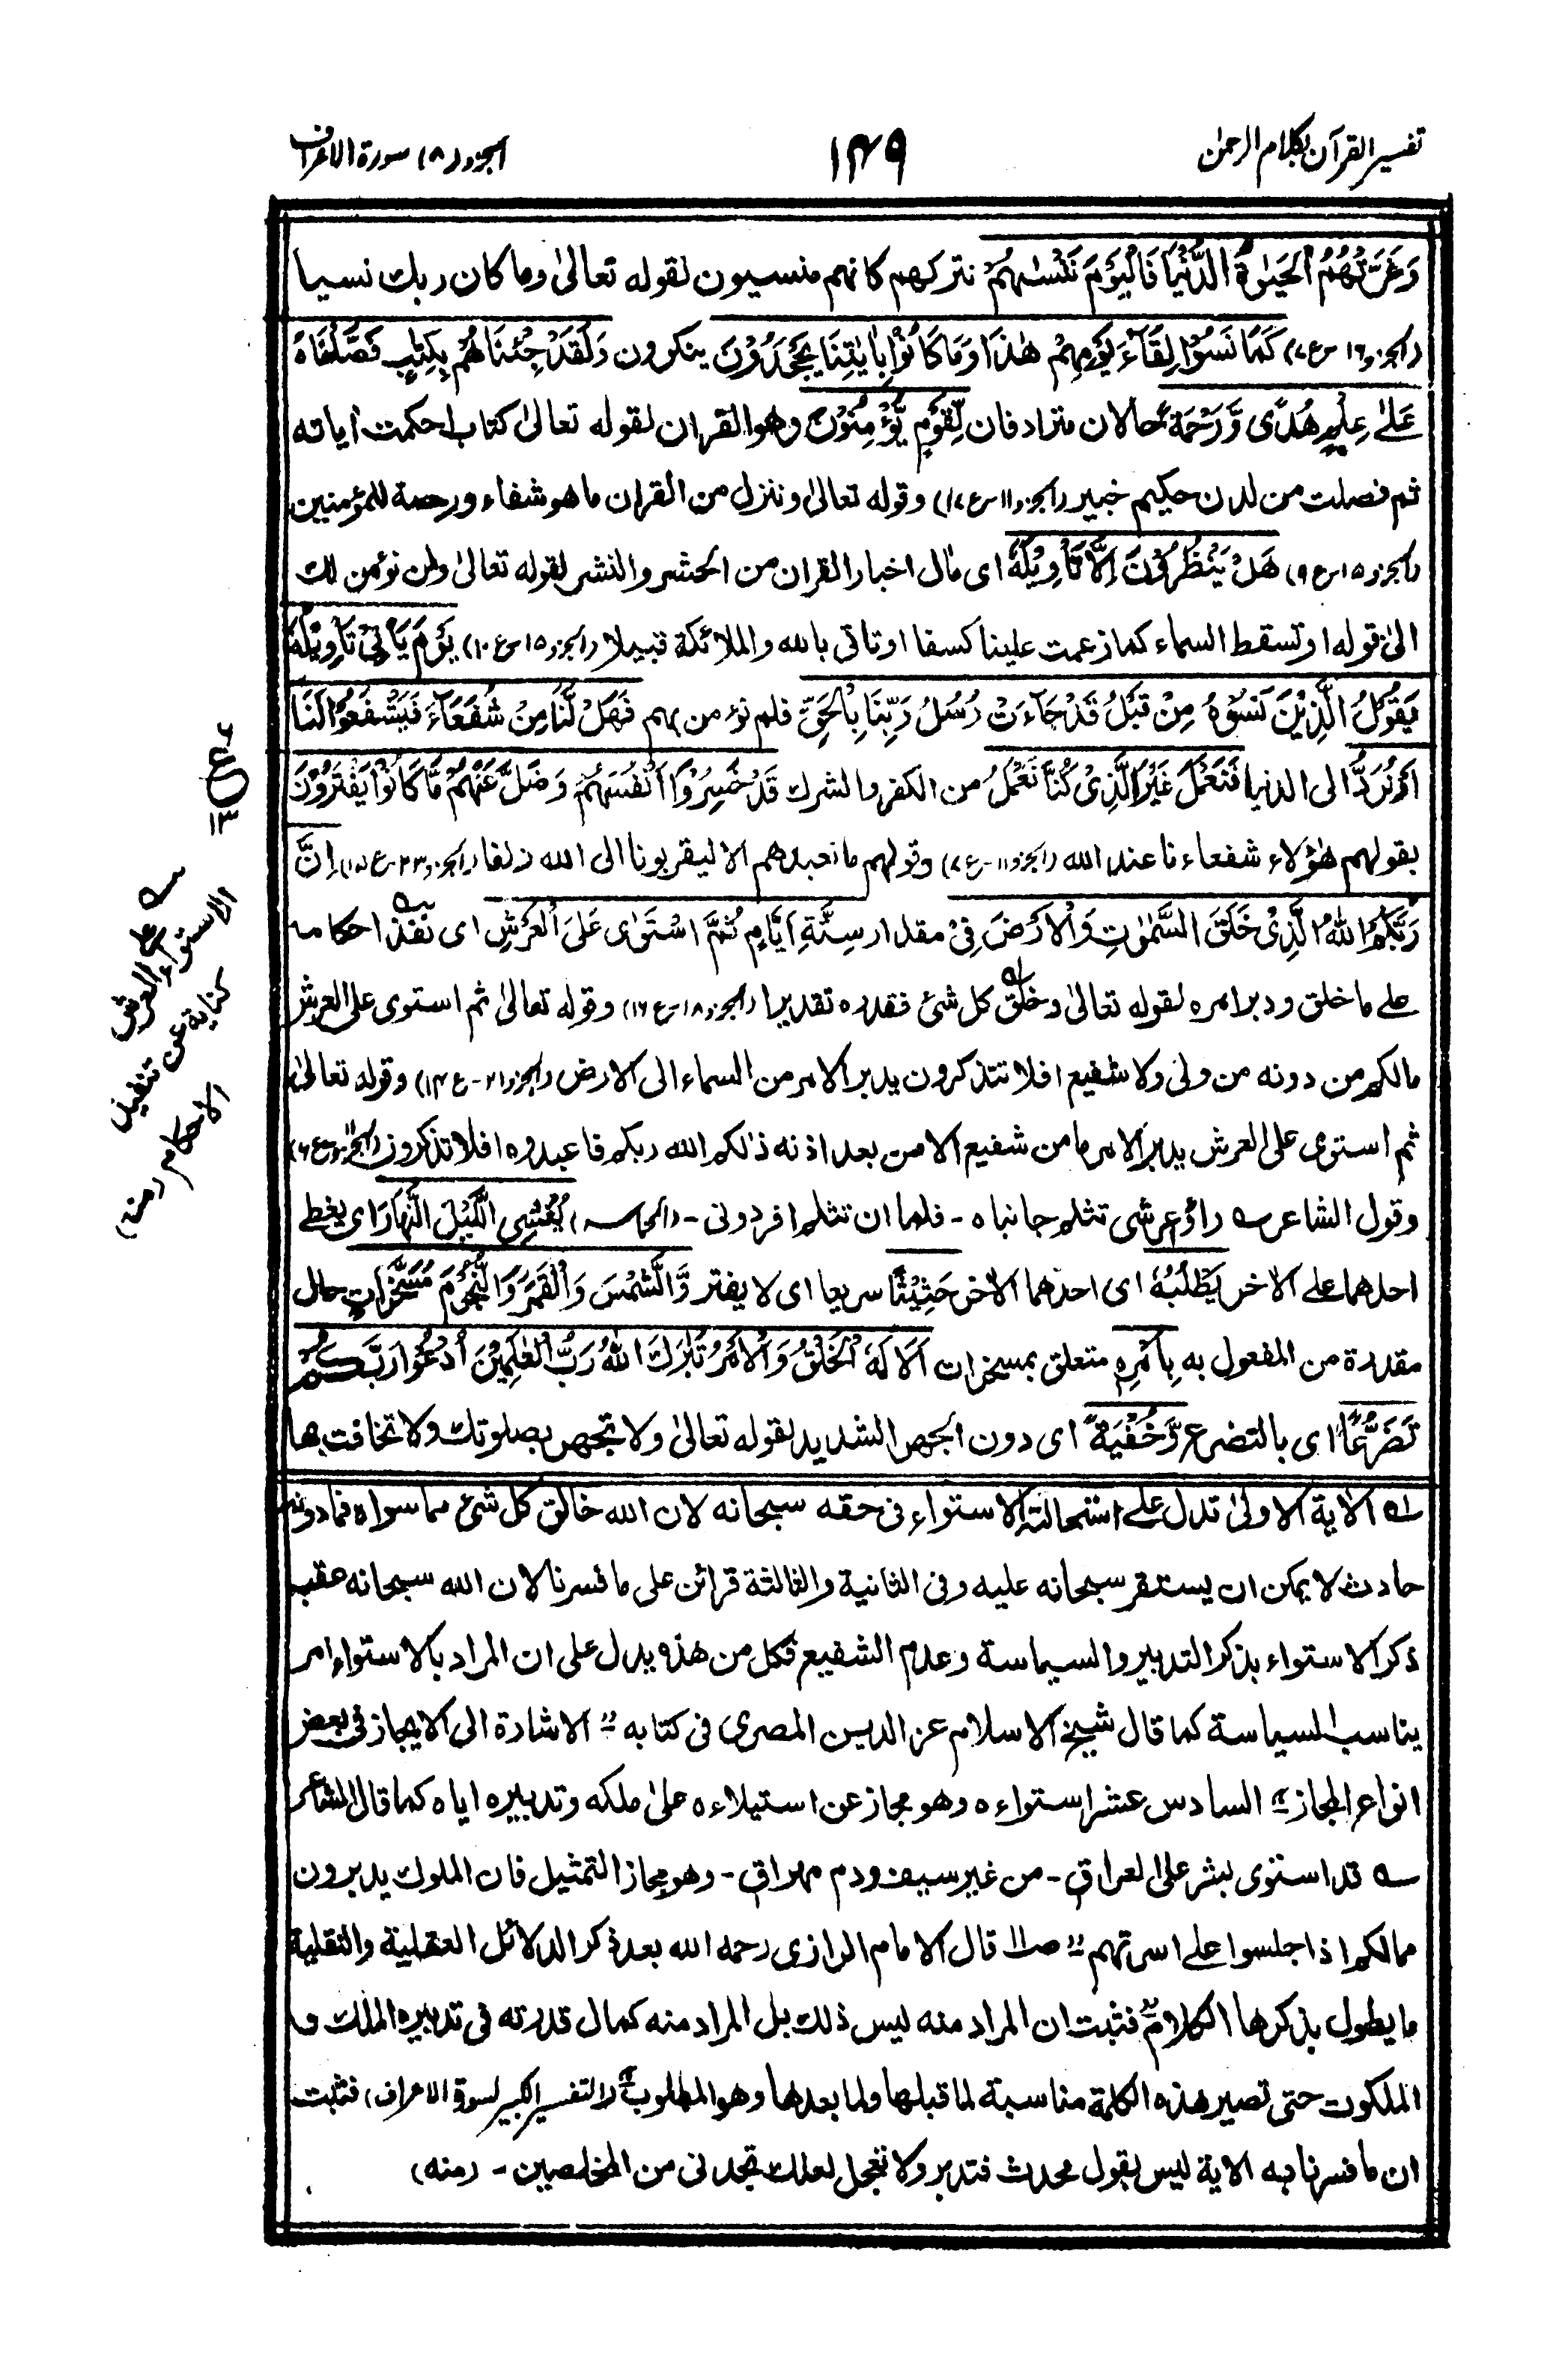 تفسیر القرآن بکلام الرحمٰن
١٤٩
الجزو (٨) سورة الاعراف
وَغَرَّتْهُمُ الْحَيٰوةُ الدُّنْيَا فَالْيَوْمَ نَنْسٰىهُمْ نتركهم كانهم منسيون لقوله تعالىٰ وما كان ربك نسيا
(الجزو ١٦ ـ ع ٧) كَمَا نَسُوْا لِقَآءَ يَوْمِهِمْ هٰذَا وَمَا كَانُوْا بِاٰيٰتِنَا يَجْحَدُوْنَ ينكرون وَلَقَدْ جِئْنَاهُمْ بِكِتٰبٍ فَصَّلْنَاهُ
عَلٰى عِلْمٍ هُدًى وَّرَحْمَةً حالان مترادفان لِّقَوْمٍ يُّؤْمِنُوْنَ وهو القران لقوله تعالىٰ كتاب احكمت اياته
ثم فصلت من لدن حكيم خبير (الجزو ١١ ـ ع ١٧) وقوله تعالىٰ وننزل من القران ما هو شفاء ورحمة للمؤمنين
(الجزو ١٥ ـ ع ٩) هَلْ يَنْظُرُوْنَ اِلَّا تَأْوِيْلَهٗ اى مآل اخبار القران من الحشر والنشر لقوله تعالىٰ ولن نؤمن لك
الىٰ قوله او تسقط السماء كما زعمت علينا كسفا او تاتى بالله والملائكة قبيلا (الجزو ١٥ ـ ع ١٠) يَوْمَ يَأْتِيْ تَأْوِيْلُهٗ
يَقُوْلُ الَّذِيْنَ نَسُوْهُ مِنْ قَبْلُ قَدْ جَآءَتْ رُسُلُ رَبِّنَا بِالْحَقِّ فلم نؤمن بهم فَهَلْ لَّنَا مِنْ شُفَعَآءَ فَيَشْفَعُوْا لَنَا
اَوْ نُرَدُّ الى الدنيا فَنَعْمَلَ غَيْرَ الَّذِيْ كُنَّا نَعْمَلُ من الكفر والشرك قَدْ خَسِرُوْا اَنْفُسَهُمْ وَضَلَّ عَنْهُمْ مَّا كَانُوْا يَفْتَرُوْنَ
بقولهم هٰؤلاء شفعاءنا عند الله (الجزو ١١ ـ ع ٧) وقولهم ما نعبدهم الا ليقربونا الى الله زلفا (الجزو ٢٣ ـ ع ١٥) اِنَّ
رَبَّكُمُ اللهُ الَّذِيْ خَلَقَ السَّمٰوٰتِ وَالْاَرْضَ فِيْ مقدار سِتَّةِ اَيَّامٍ ثُمَّ اسْتَوٰى عَلَى الْعَرْشِ اى نفذ احكامه
على ما خلق ودبر امره لقوله تعالىٰ وخلق كل شئ فقدره تقديرا (الجزو ١٨ ـ ع ١٦) وقوله تعالىٰ ثم استوى على العرش
مالكم من دونه من ولى ولا شفيع افلا تتذكرون يدبر الامر من السماء الى الارض (الجزو ٢١ ـ ع ١٤) وقوله تعالىٰ
ثم استوى على العرش يدبر الامر ما من شفيع الا من بعد اذنه ذٰلكم الله ربكم فاعبدوه افلا تذكرون (الجزو ١١ ع ٦)
وقول الشاعر ؎ راؤ عرشى تثلم جانباه ـ فلما ان تثلم افردونى ـ (الحماسه) يُغْشِي الَّيْلَ النَّهَارَ اى يغطى
احدهما على الاخر يَطْلُبُهٗ اى احدهما الآخر حَثِيْثًا سريعا اى لا يفتر وَّالشَّمْسَ وَالْقَمَرَ وَالنُّجُوْمَ مُسَخَّرَاتٍ حال
مقدرة من المفعول به بِاَمْرِهٖ متعلق بمسخرات اَلَا لَهُ الْخَلْقُ وَالْاَمْرُ تَبٰرَكَ اللهُ رَبُّ الْعٰلَمِيْنَ اُدْعُوْا رَبَّكُمْ
تَضَرُّعًا اى بالتضرع وَّخُفْيَةً اى دون الجهر الشديد لقوله تعالىٰ ولا تجهر بصلوتك ولا تخافت بها
؎ الآية الاولىٰ تدل على استحالة الاستواء فى حقه سبحانه لان الله خالق كل شئ مما سواه فما دونه
حادث لا يمكن ان يستقر سبحانه عليه وفى الثانية والثالثة قرائن على ما فسرنا لان الله سبحانه عقب
ذكر الاستواء بذكر التدبير والسياسة وعدم الشفيع فكل من هذه يدل على ان المراد بالاستواء امر
يناسب السياسة كما قال شيخ الاسلام عز الدين المصرى فى كتابه " الاشارة الى الايجاز فى بعض
انواع المجاز " السادس عشر استواءه وهو مجاز عن استيلاءه علىٰ ملكه وتدبيره اياه كما قال الشاعر
؎ قد استوى بشر على العراق ـ من غير سيف ودم مهراق ـ وهو مجاز التمثيل فان الملوك يدبرون
ممالكهم اذا جلسوا على اسرتهم " صـ١١ قال الامام الرازى رحمه الله بعد ذكر الدلائل العقلية والنقلية
ما يطول بذكرها الكلام " فثبت ان المراد منه ليس ذلك بل المراد منه كمال قدرته فى تدبير الملك و
الملكوت حتى تصير هذه الكلمة مناسبة لما قبلها ولما بعدها وهو المطلوب " (التفسير الكبير لسورة الاعراف) فثبت
ان ما فسرنا به الاية ليس بقول محدث فتدبر ولا تعجل لعلك تجدنى من المخلصين ـ (منه)
٦
ع
١٣
؎
الاستواء على العرش
كناية عن تنفيذ
الاحكام (منه)